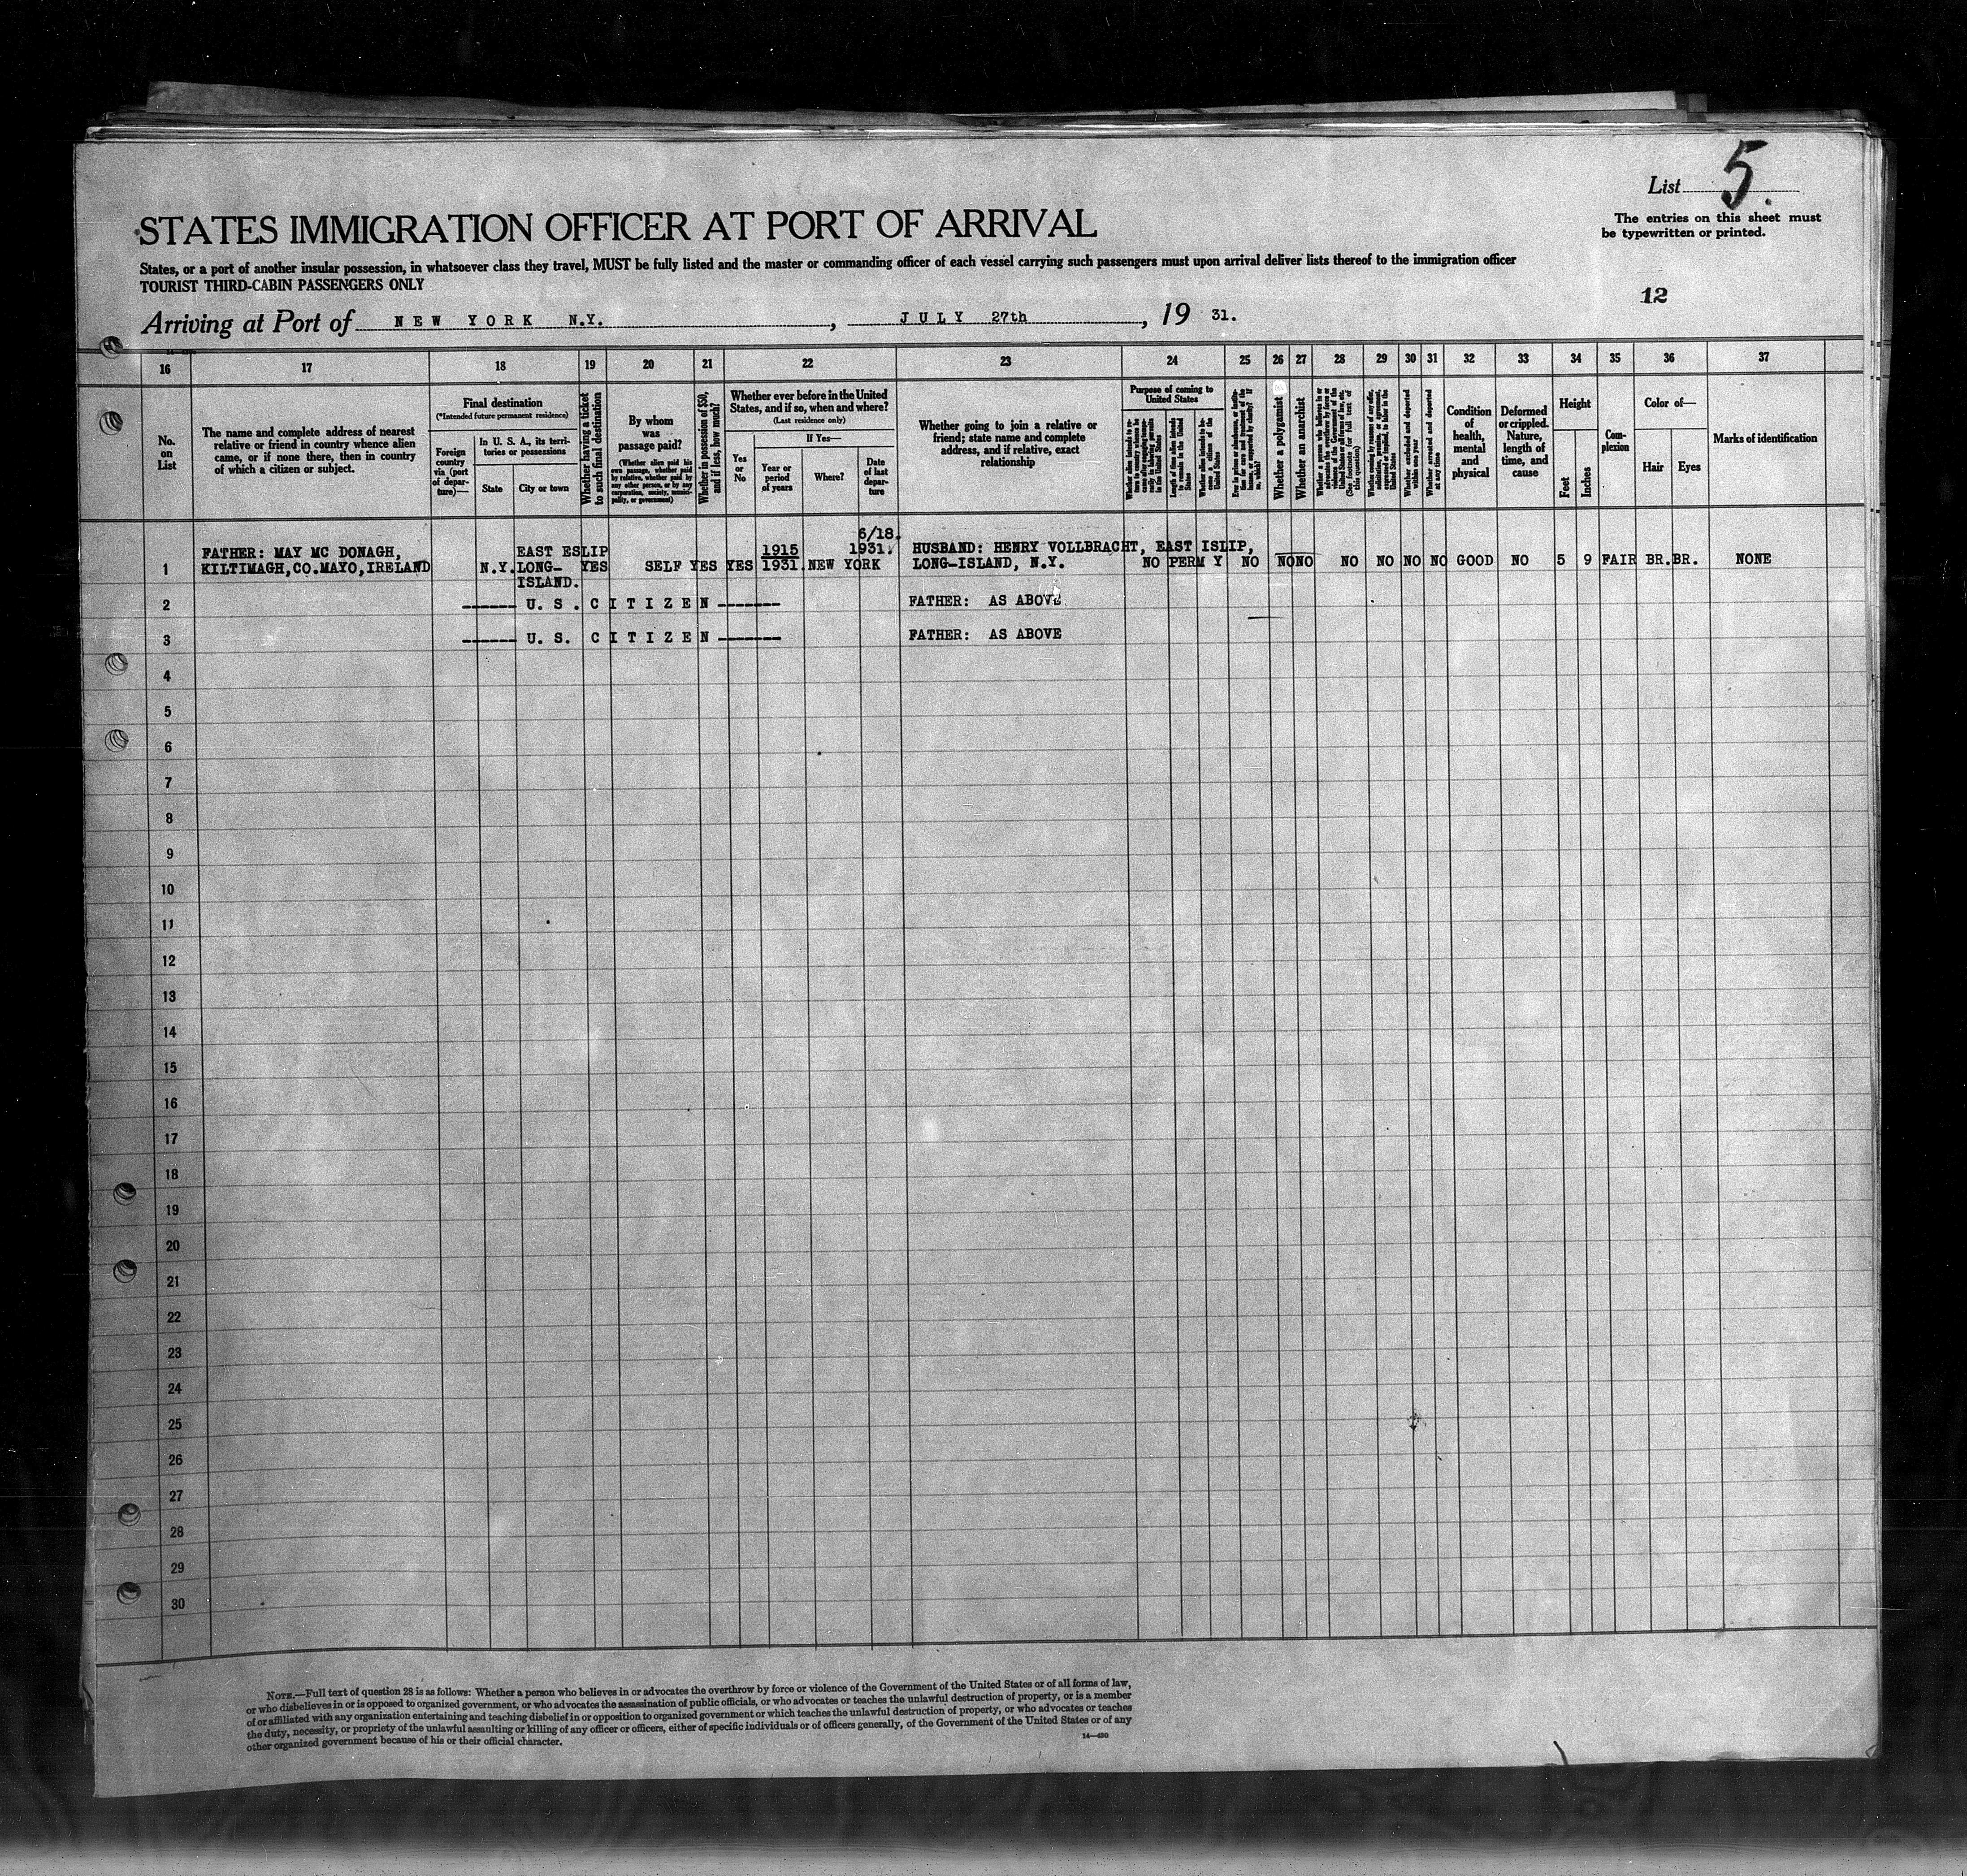 List 5.
The entries on this sheet must
be typewritten or printed.
STATES IMMIGRATION OFFICER AT PORT OF ARRIVAL
States, or a port of another insular possession, in whatsoever class they travel, MUST be fully listed and the master or commanding officer of each vessel carrying such passengers must upon arrival deliver lists thereof to the immigration officer
TOURIST THIRD-CABIN PASSENGERS ONLY
12
Arriving at Port of NEW YORK N.Y., JULY 27th, 19 31.
16 17 18 19 20 21 22 23 24 25 26 27 28 29 30 31 32 33 34 35 36 37
No.
on
List
The name and complete address of nearest
relative or friend in country whence alien
came, or if none there, then in country
of which a citizen or subject.
Final destination
(*Intended future permanent residence)
Foreign
country
via (port
of depar-
ture)—
In U. S. A., its terri-
tories or possessions
State
City or town
Whether having a ticket
to such final destination
By whom
was
passage paid?
(Whether alien paid his
own passage, whether paid
by relative, whether paid by
any other person, or by any
corporation, society, munici-
pality, or government)
Whether in possession of $50,
and if less, how much?
Whether ever before in the United
States, and if so, when and where?
(Last residence only)
Yes
or
No
If Yes—
Year or
period
of years
Where?
Date
of last
depar-
ture
Whether going to join a relative or
friend; state name and complete
address, and if relative, exact
relationship
Purpose of coming to
United States
Length of time alien intends
to remain in the United
States
Whether a polygamist
Whether an anarchist
Whether excluded and deported
within one year
Whether arrested and deported
at any time
Condition
of
health,
mental
and
physical
Deformed
or crippled.
Nature,
length of
time, and
cause
Height
Feet
Inches
Com-
plexion
Color of—
Hair
Eyes
Marks of identification
1
FATHER: MAY MC DONAGH,
KILTIMAGH,CO.MAYO,IRELAND
N.Y.
EAST ESLIP
LONG-
ISLAND.
YES
SELF
YES
YES
1915
1931
NEW YORK
6/18.
1931.
HUSBAND: HENRY VOLLBRACHT, EAST ISLIP,
LONG-ISLAND, N.Y.
NO PERM Y NO NO NO NO NO NO NO GOOD NO 5 9 FAIR BR. BR. NONE
2 ------ U. S. CITIZEN ------ FATHER: AS ABOVE
3 ------ U. S. CITIZEN ------ FATHER: AS ABOVE
4
5
6
7
8
9
10
11
12
13
14
15
16
17
18
19
20
21
22
23
24
25
26
27
28
29
30
NOTE.—Full text of question 28 is as follows: Whether a person who believes in or advocates the overthrow by force or violence of the Government of the United States or of all forms of law,
or who disbelieves in or is opposed to organized government, or who advocates the assassination of public officials, or who advocates or teaches the unlawful destruction of property, or is a member
of or affiliated with any organization entertaining and teaching disbelief in or opposition to organized government or which teaches the unlawful destruction of property, or who advocates or teaches
the duty, necessity, or propriety of the unlawful assaulting or killing of any officer or officers, either of specific individuals or of officers generally, of the Government of the United States or of any
other organized government because of his or their official character.
14—430